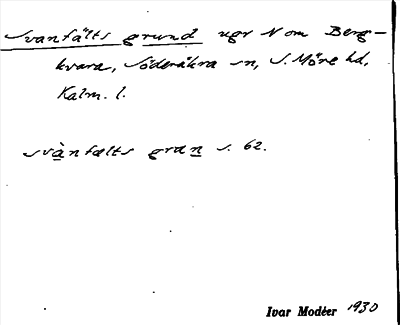 Svanfälts grund ugr N om Berg-
kvara, Söderåkra sn, S. Möre hd,
Kalm. l.
svànfælts gran s. 62.
Ivar Modéer 1930